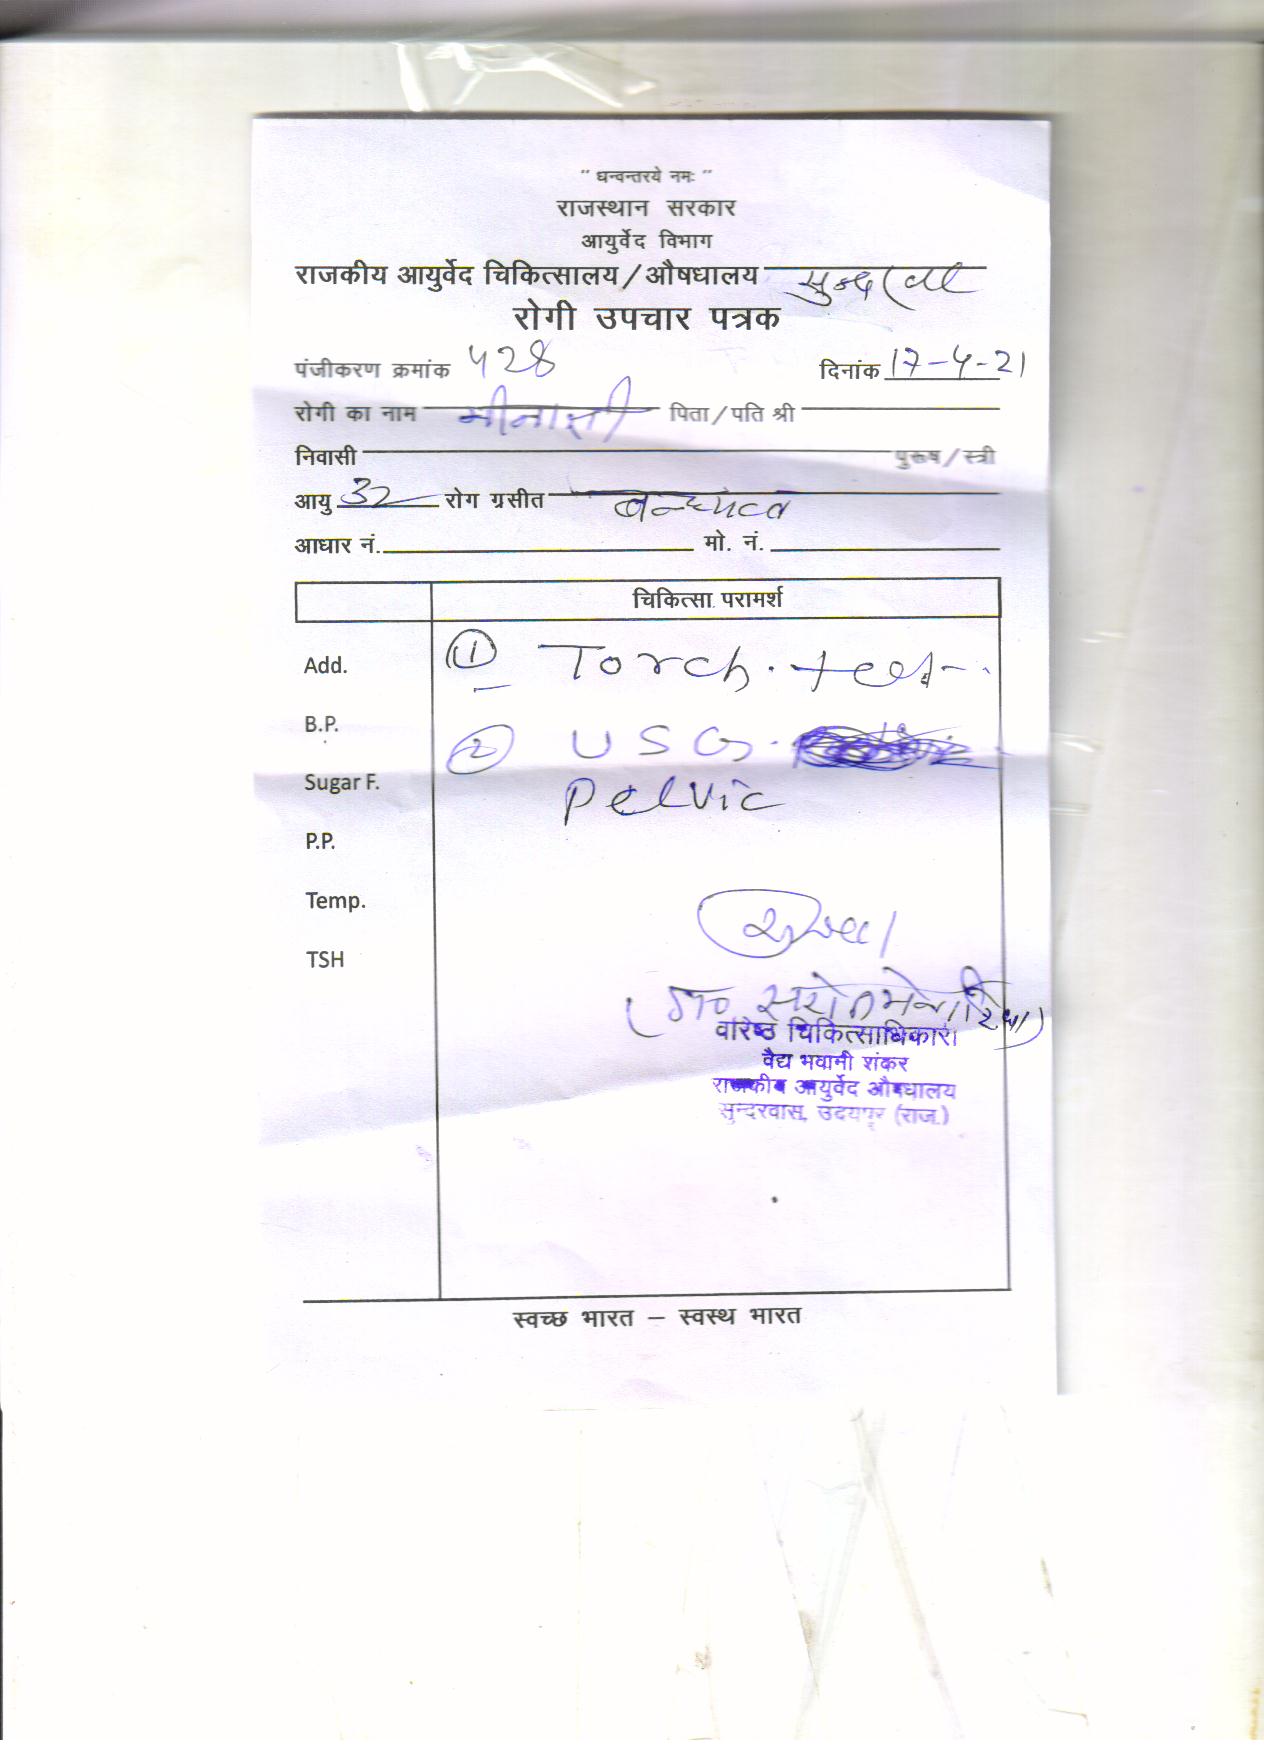 " धन्वन्तरये नमः "
राजस्थान सरकार
आयुर्वेद विभाग
राजकीय आयुर्वेद चिकित्सालय/औषधालय
रोगी उपचार पत्रक
पंजीकरण क्रमांक 428 दिनांक 17-4-21
रोगी का नाम मीनाक्षी पिता/पति श्री
निवासी पुरूष/स्त्री
आयु 32 रोग ग्रसीत बन्ध्यत्व
आधार नं. मो. नं.
चिकित्सा परामर्श
Add. ① Torch. test
B.P. ② USG.
Sugar F. Pelvic
P.P.
Temp.
TSH
(डॉ० सरोज मेनारिया)
वरिष्ठ चिकित्साधिकारी
वैद्य भवानी शंकर
राजकीय आयुर्वेद औषधालय
सुन्दरवास, उदयपुर (राज.)
स्वच्छ भारत – स्वस्थ भारत